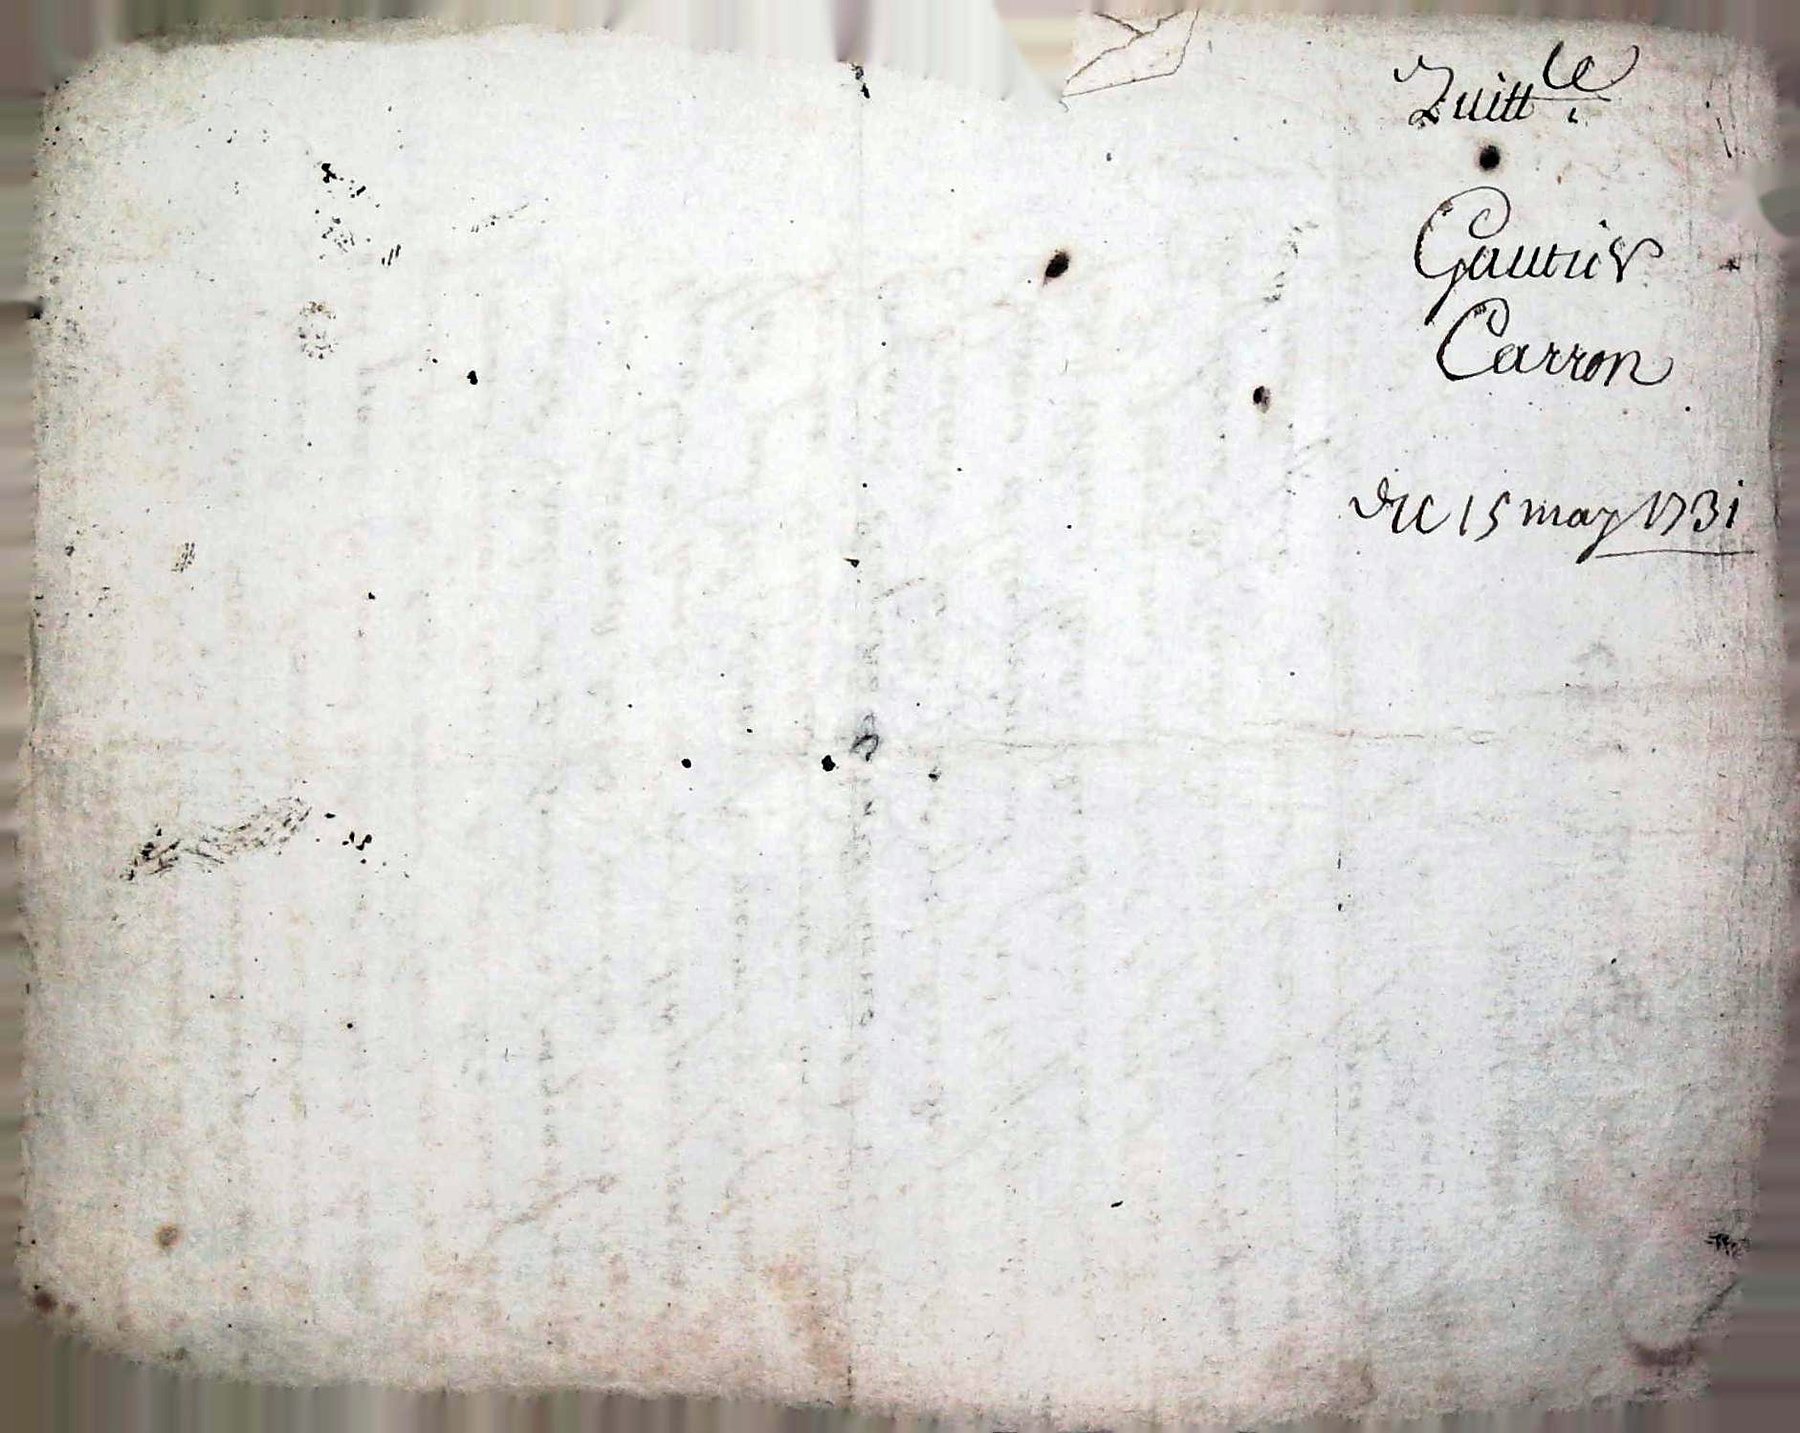 Quitt^ce
Gautier
Carron
du 15 may 1731